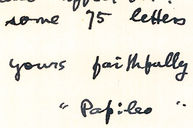 some 75 letters
yours faithfully
"Papileo"